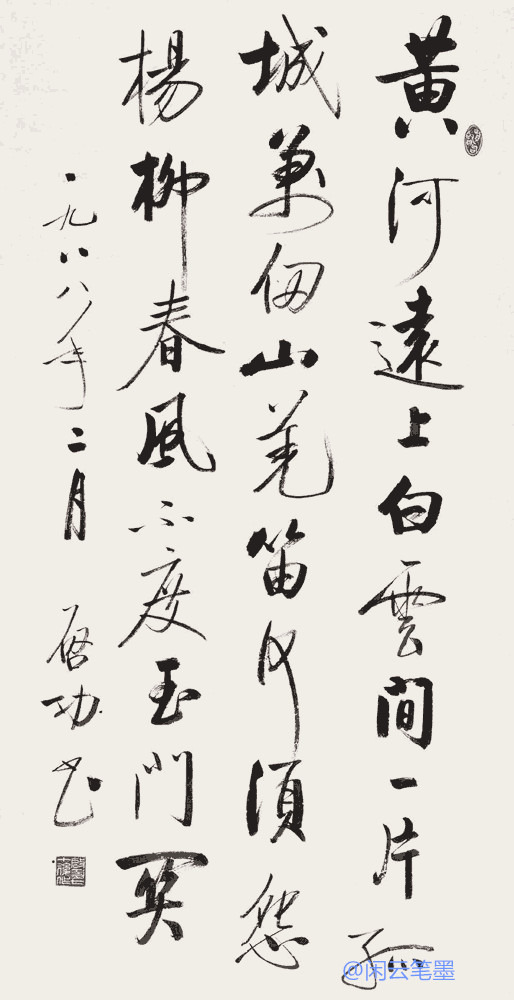 黄河遠上白雲間一片孤
城萬仞山羌笛何須怨
楊柳春風不度玉門関
一九八八年二月 啓功書
@闲云笔墨